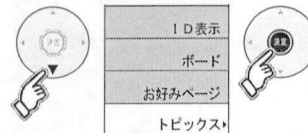 決定
ID表示
ボード
お好みページ
トピックス
決定